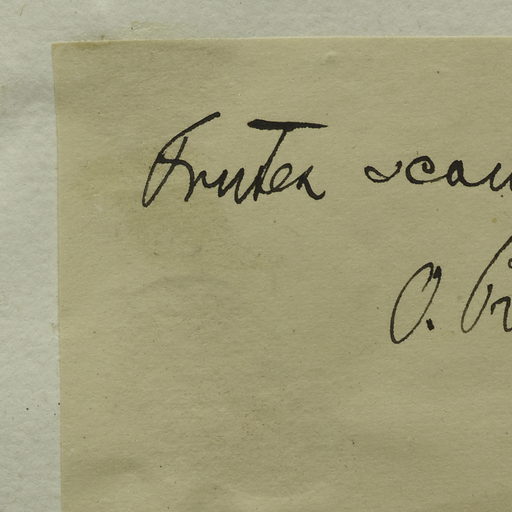 Frutex scan
O. Pr